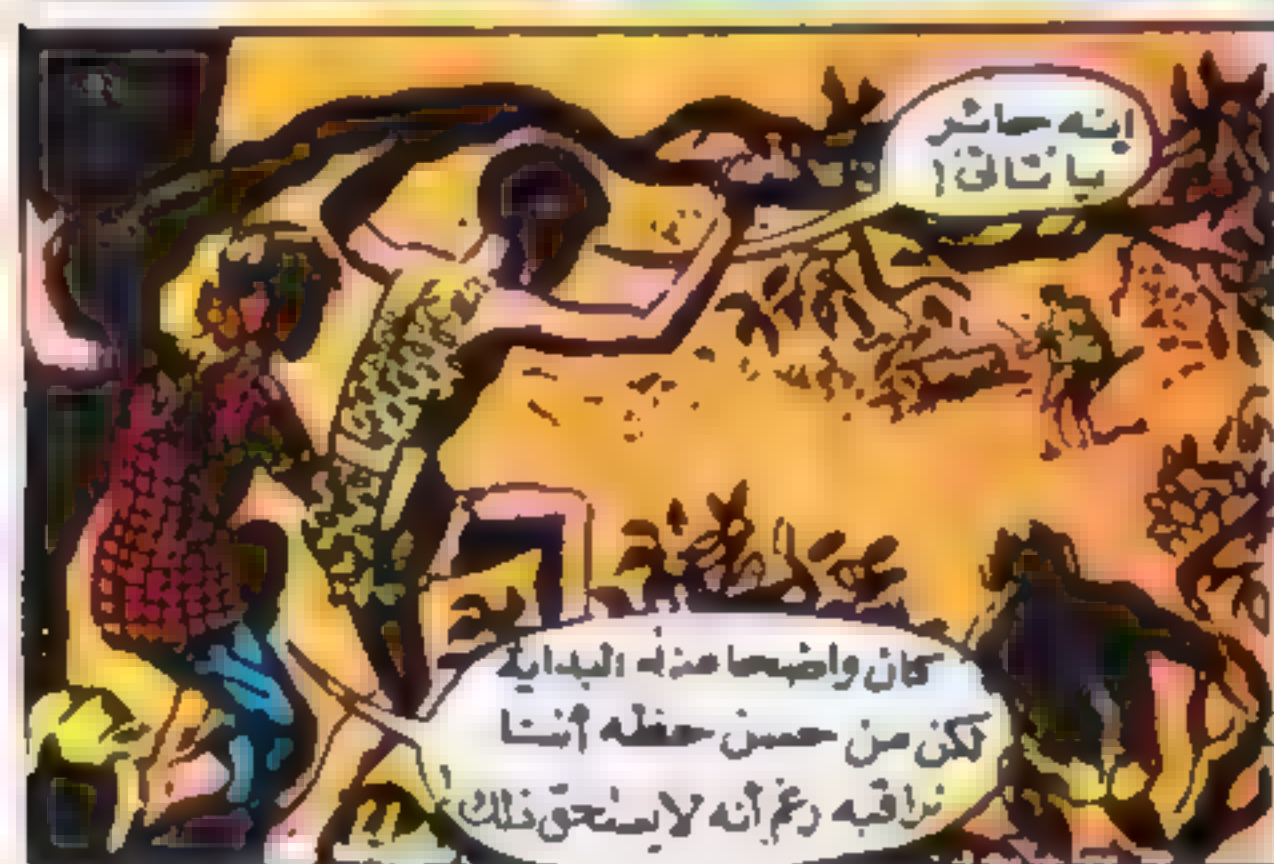 إنه حائر
يا نتاتى !
كان واضحا منذ البداية
لكن من حسن حظه أننا
نراقبه رغم أنه لا يستحق ذلك !